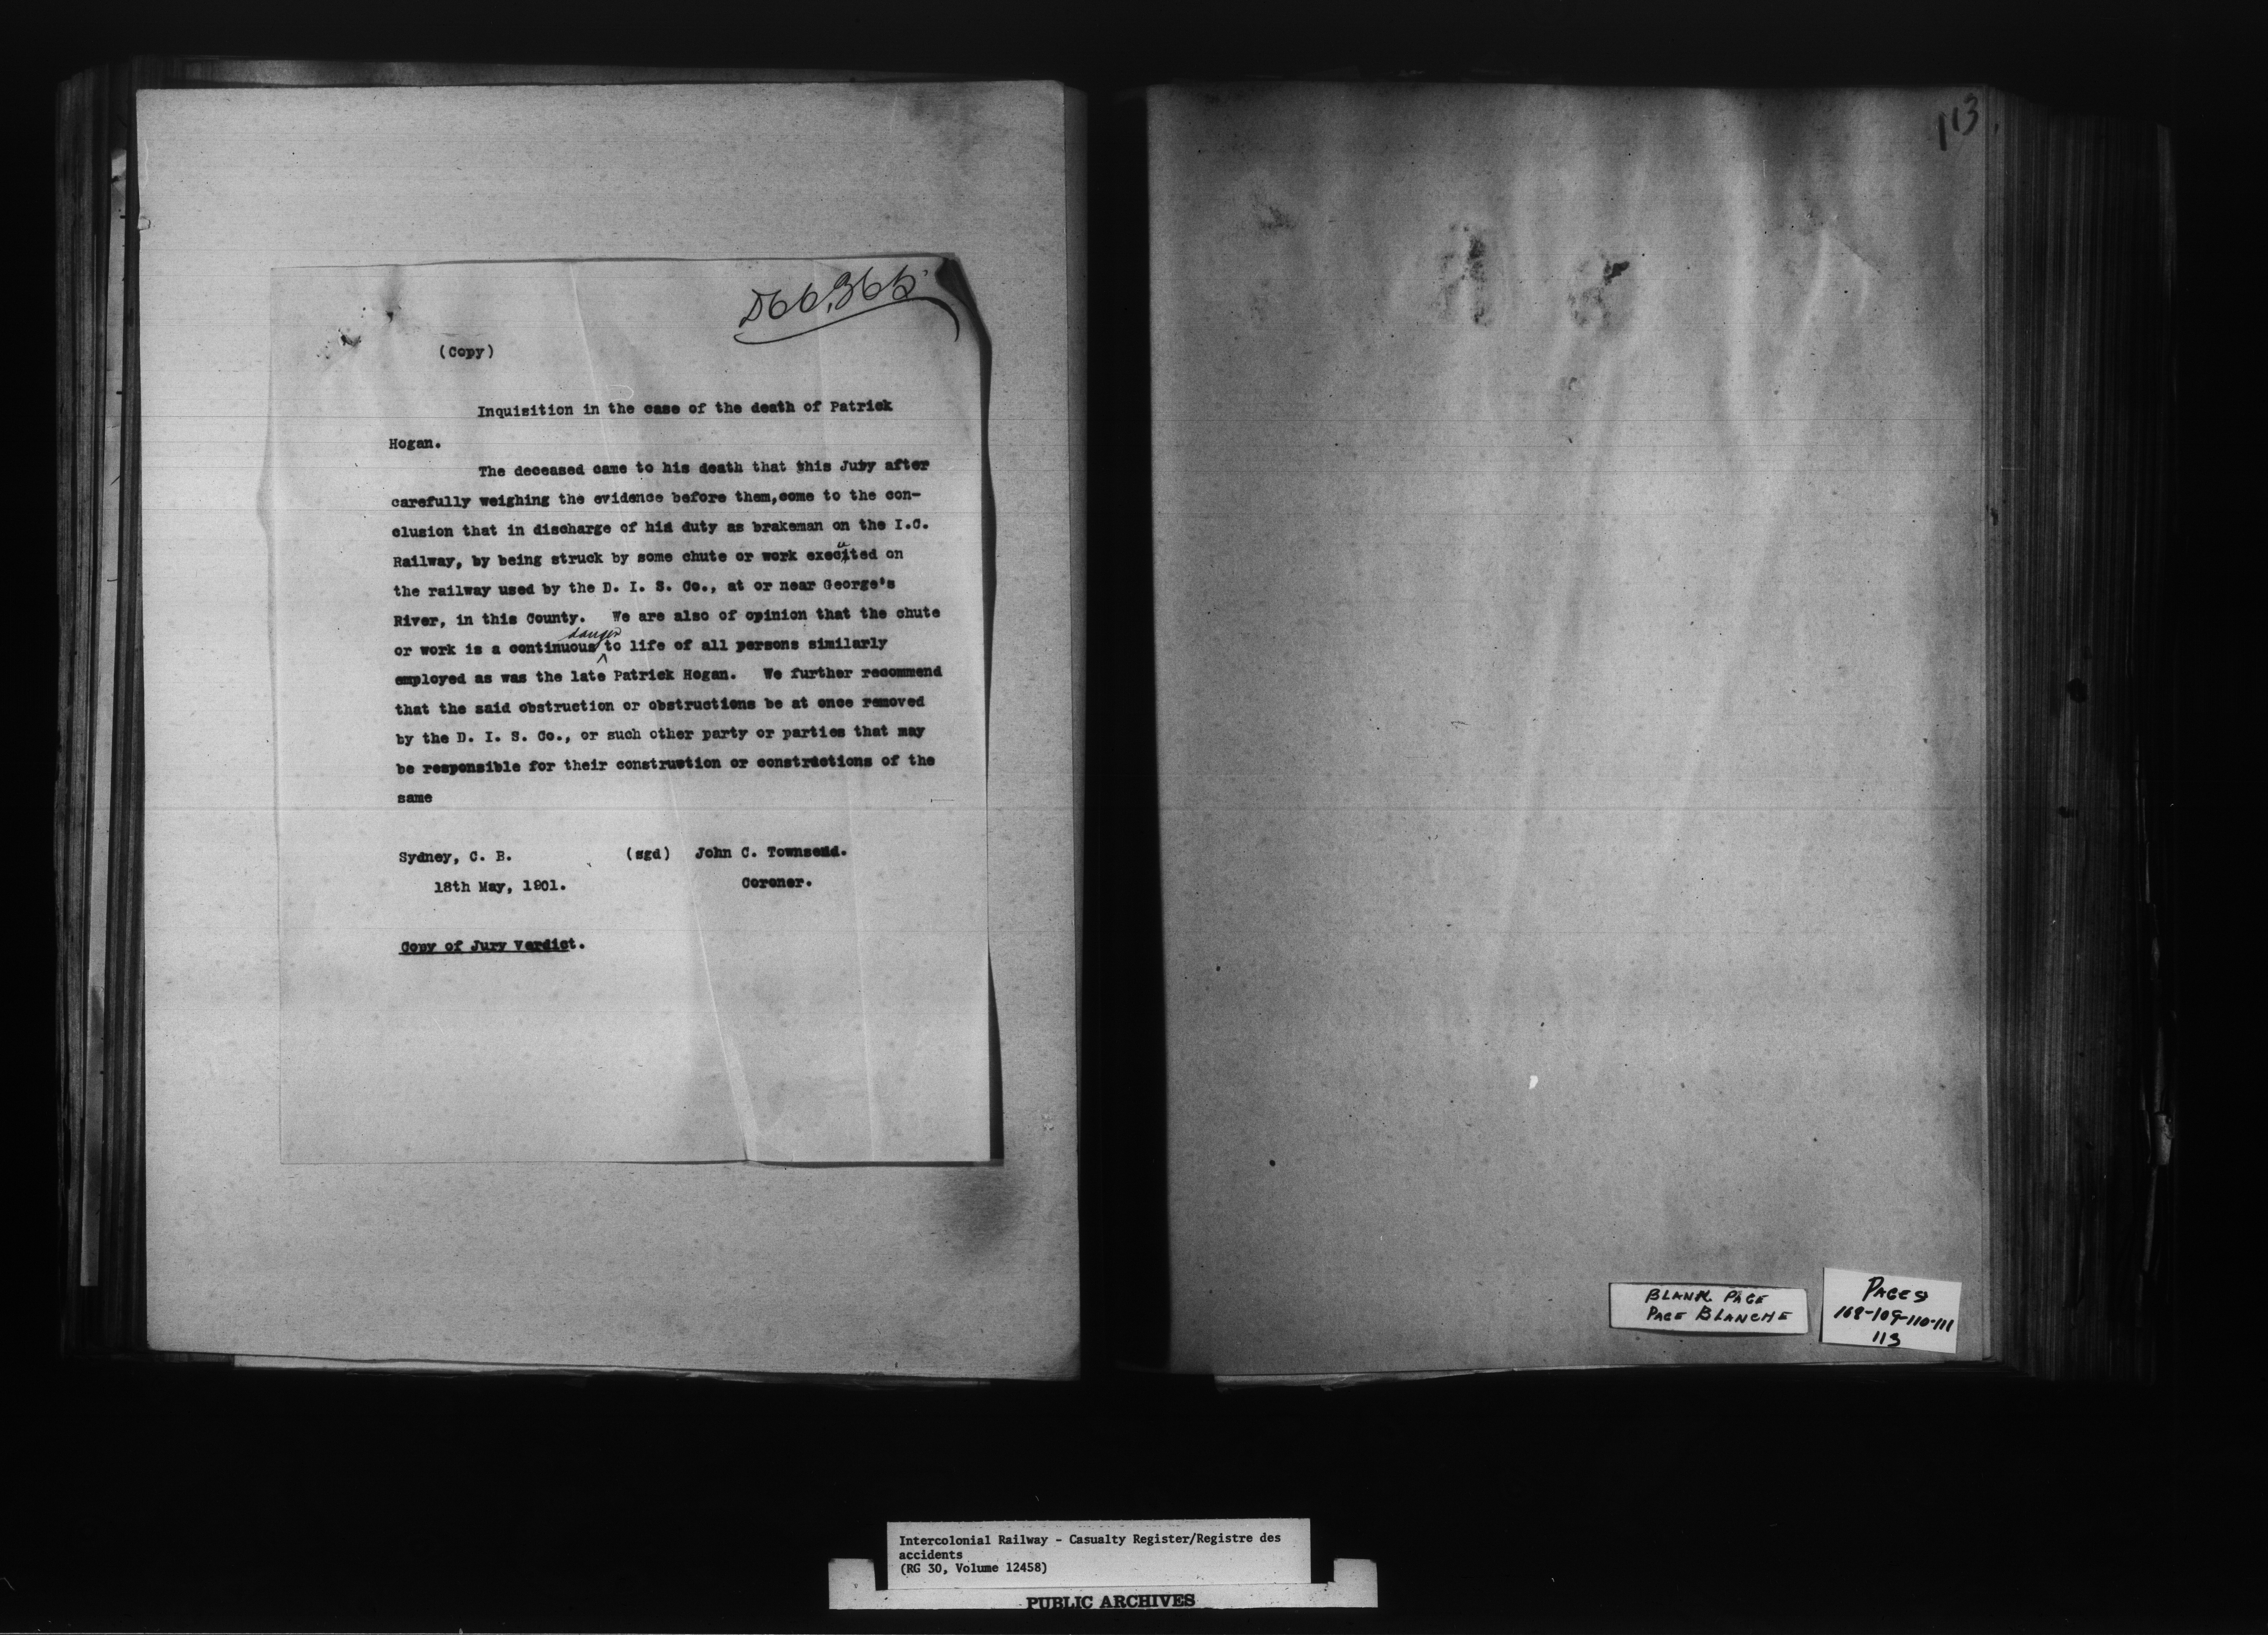 566,366
(Copy)
Inquisition in the case of the death of Patrick
Hogan.
The deceased came to his death that this Jury after
carefully weighing the evidence before them, come to the con-
clusion that in discharge of his duty as brakeman on the I.C.
Railway, by being struck by some chute or work executed on
the railway used by the D. I. S. Co., at or near George's
River, in this County. We are also of opinion that the chute
or work is a continuous danger to life of all persons similarly
employed as was the late Patrick Hogan. We further recommend
that the said obstruction or obstructions be at once removed
by the D. I. S. Co., or such other party or parties that may
be responsible for their construction or constructions of the
same
Sydney, C. B. (sgd) John C. Townsend.
18th May, 1901. Coroner.
Copy of Jury Verdict.
113
BLANK PAGE
PAGE BLANCHE
PAGES
108-109-110-111
113
Intercolonial Railway - Casualty Register/Registre des
accidents
(RG 30, Volume 12458)
PUBLIC ARCHIVES